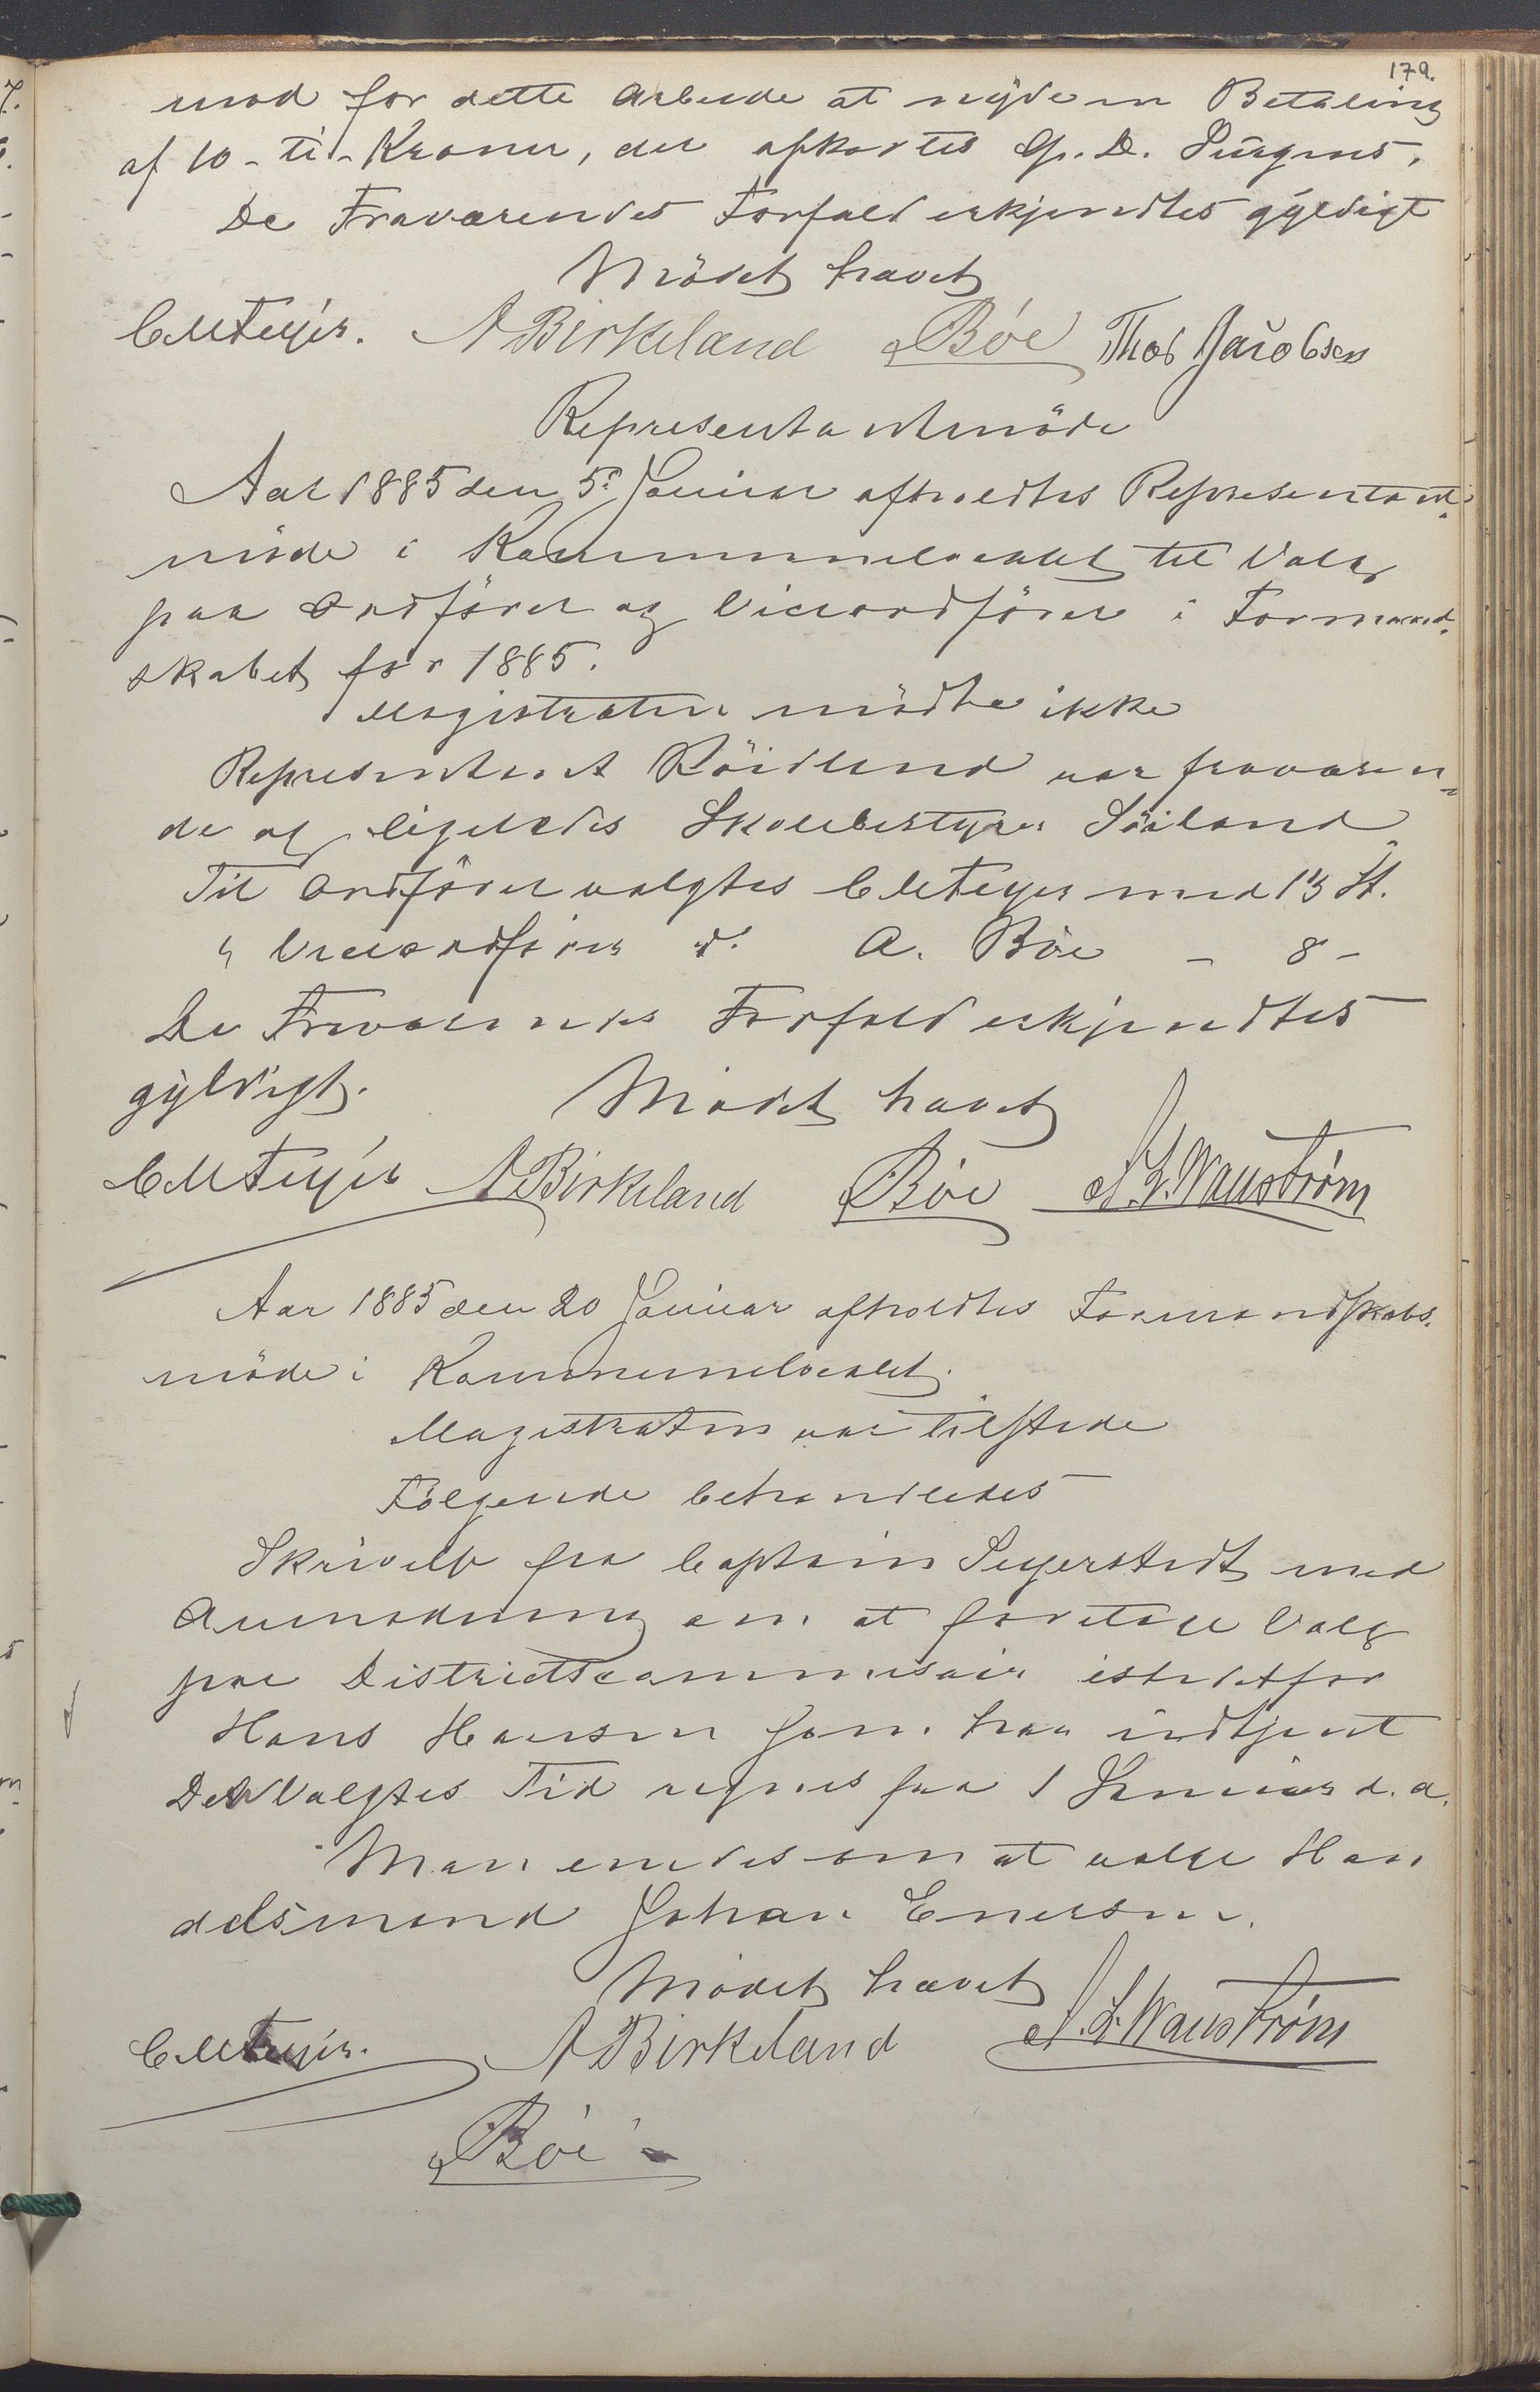 179.
mod for dette Arbeide at nyde en Betaling
af 10 - ti - Kroner, der afkortes G. D. Jürgens,
De Fraværendes Forfald erkjendtes gyldigt
Mödet hævet
C Meyer. A Birkeland Böe Thos Jacobsen
Representantmöde
Aar 1885 den 5. Januar afholdtes Representant-
möde i Kommunelocalet til Valg
paa Ordförer og Viceordförer i Formand-
skabet for 1885.
Magistraten mödte ikke
Representant Röidland var fraværen-
de og ligeledes Skolebestyrer Söiland
Til Ordförer valgtes C Meyer med 13 St.
" Viceordförer d. A. Böe - 8 -
De Fraværendes Forfald erkjendtes
gyldigt.
Mödet hævet
C Meyer A Birkeland Böe L. Wanström
Aar 1885 den 20 Januar afholdtes Formandskabs-
möde i Kommunelocalet.
Magistraten var tilstede
Fölgende behandledes
Skrivelse fra Captain Segerstedt med
Anmodning om at foretage Valg
paa Districtscommissair istedetfor
Hans Hansen som har udtjent
Den Valgtes Tid regnes fra 1 Januar d. a.
Man enedes om at vælge Han
delsmand Johan Enersen.
Mödet hævet
C Meyer. A Birkeland L. Wanström
Böe